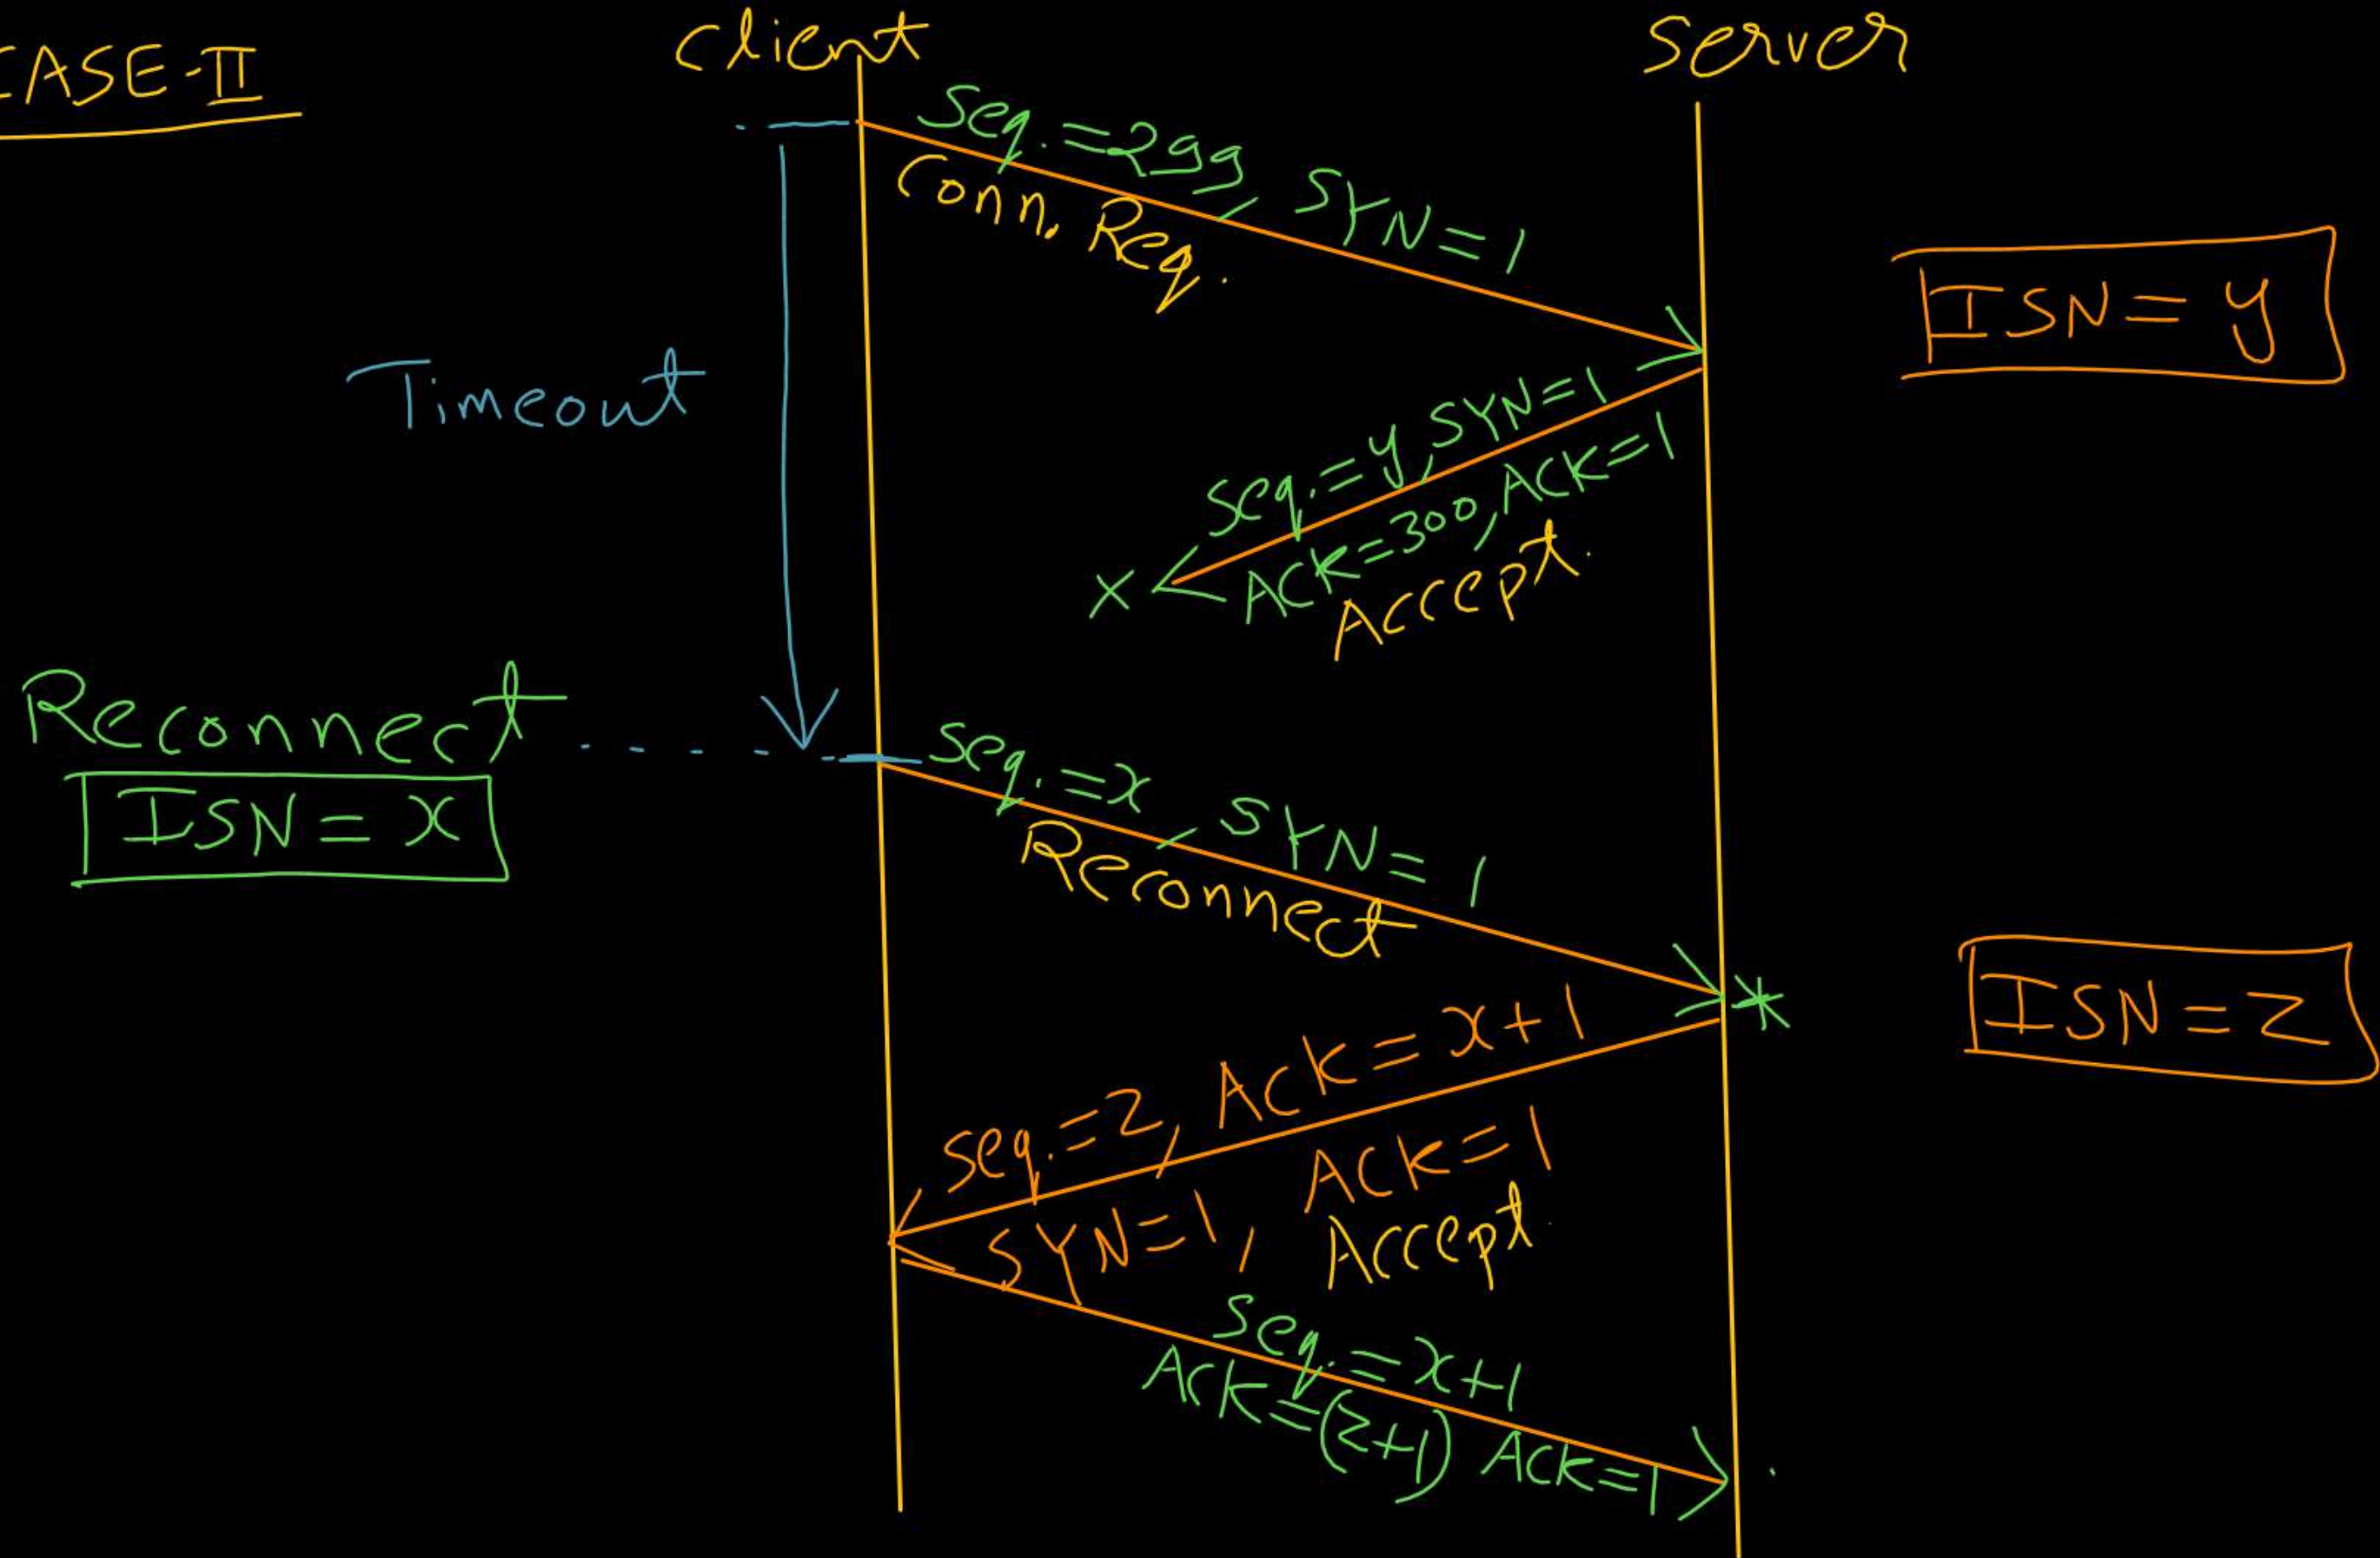 CASE-II
Client
Server
Seq.=299, SYN=1
Conn. Req.
ISN=y
Timeout
Seq.=y, SYN=1
ACK=300, ACK=1
Accept.
x
Reconnect
ISN=x
Seq.=x, SYN=1
Reconnect
*
ISN=z
Seq.=z, ACK=x+1
SYN=1, ACK=1
Accept
Seq.=x+1
Ack=(z+1) Ack=1